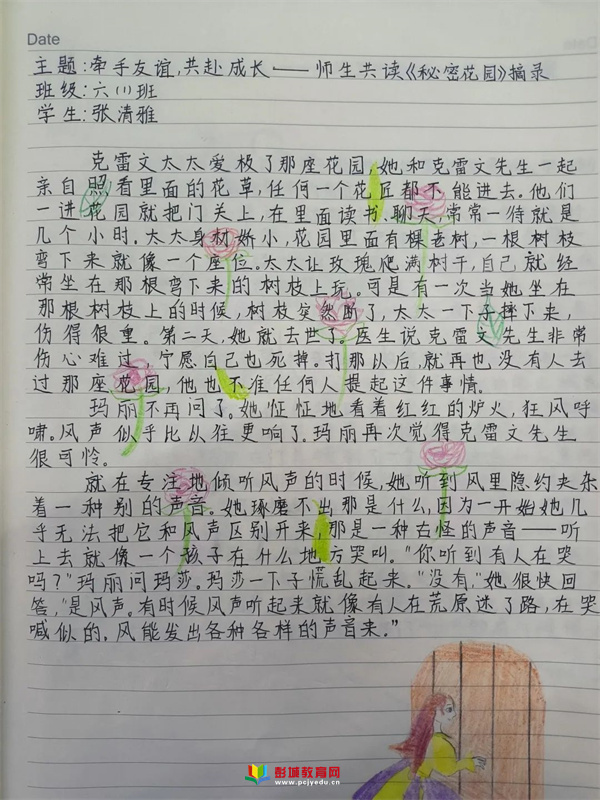 Date
主题:牵手友谊,共赴成长——师生共读《秘密花园》摘录
班级:六(1)班
学生:张清雅
克雷文太太爱极了那座花园,她和克雷文先生一起
亲自照看里面的花草,任何一个花匠都不能进去。他们
一进花园就把门关上,在里面读书聊天,常常一待就是
几个小时。太太身材娇小,花园里面有棵老树,一根树枝
弯下来就像一个座位。太太让玫瑰爬满树干,自己就经
常坐在那根弯下来的树枝上玩。可是有一次当她坐在
那根树枝上的时候,树枝突然断了,太太一下子摔下来,
伤得很重。第二天,她就去世了。医生说克雷文先生非常
伤心难过,宁愿自己也死掉。打那以后,就再也没有人去
过那座花园,他也不准任何人提起这件事情。
玛丽不再问了。她怔怔地看着红红的炉火,狂风呼
啸。风声似乎比以往更响了。玛丽再次觉得克雷文先生
很可怜。
就在专注地倾听风声的时候,她听到风里隐约夹东
着一种别的声音。她琢磨不出那是什么,因为一开始她几
乎无法把它和风声区别开来,那是一种右怪的声音——听
上去就像一个孩子在什么地方哭叫。"你听到有人在哭
吗?"玛丽问玛莎。玛莎一下子慌乱起来。"没有,"她很快回
答,"是风声。有时候风声听起来就像有人在荒原迷了路,在哭
喊似的,风能发出各种各样的声音来。"
彭城教育网
www.pcjyedu.cn